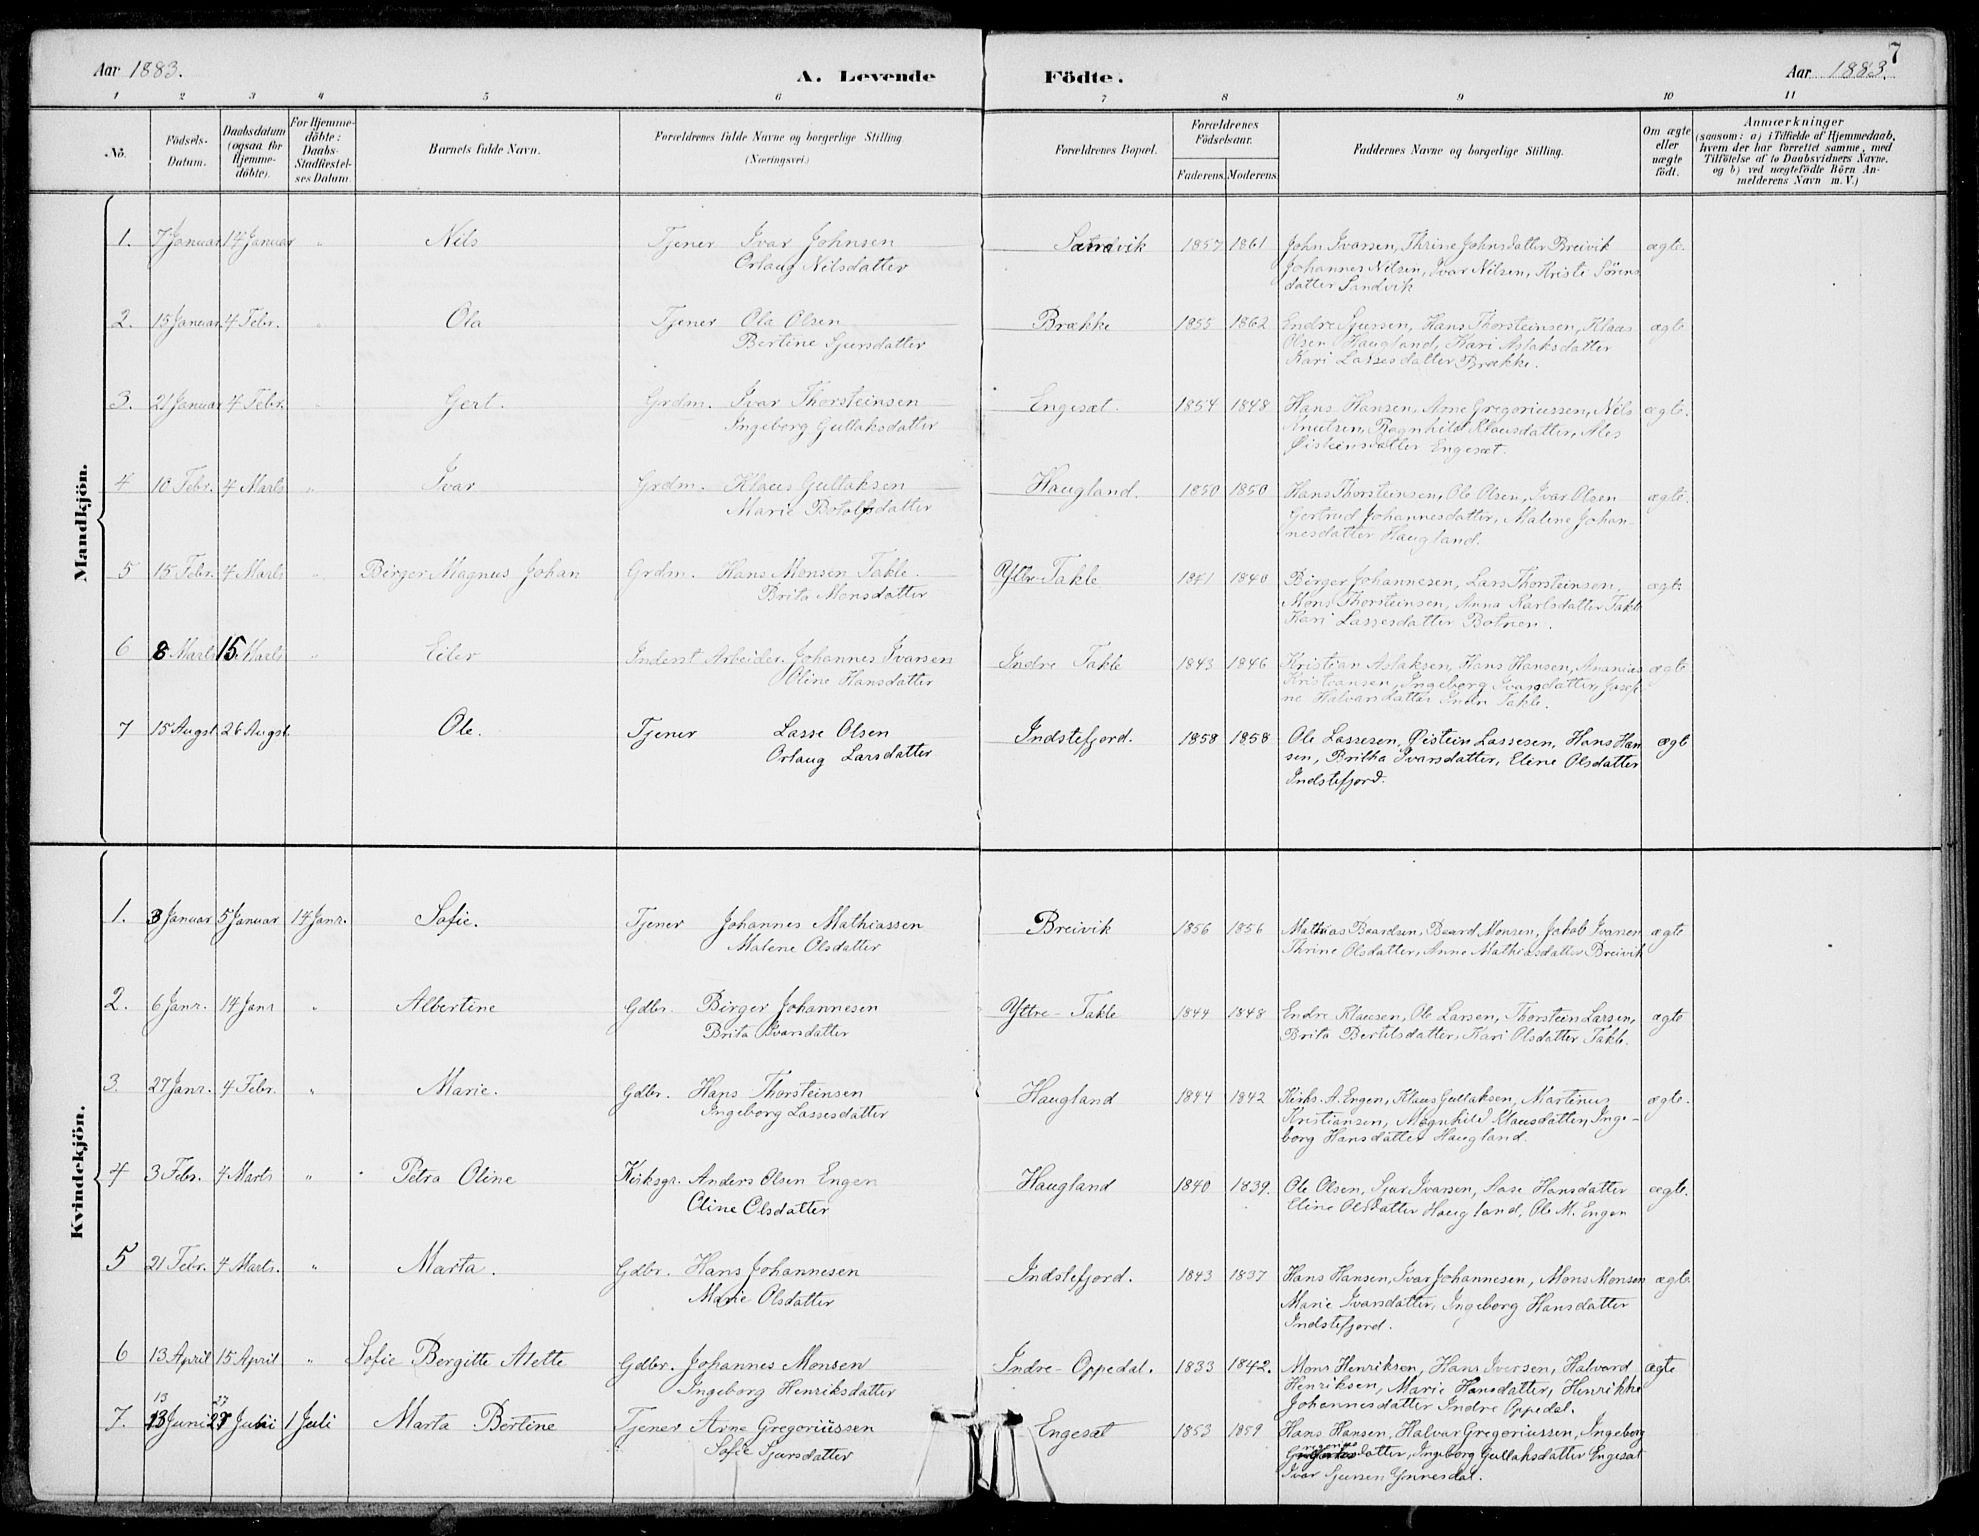 7
Aar 1883.
A. Levende Födte.
Aar 1883.
1 2 3 4 5 6 7 8 9 10 11
No.
Födsels-Datum.
Daabsdatum (ogsaa for Hjemmedöbte).
For Hjemmedöbte: Daabs-Stadfæstelses Datum.
Barnets fulde Navn.
Forældrenes fulde Navne og borgerlige Stilling (Næringsvei.)
Forældrenes Bopæl.
Forældrenes Födselsaar.
Faderens. Moderens.
Faddernes Navne og borgerlige Stilling.
Om ægte eller uægte födt.
Anmærkninger
(saasom: a) i Tilfælde af Hjemmedaab, hvem der har forrettet samme, med Tilföielse af to Daabsvidners Navne, og b) ved uægtefödte Börn Anmelderens Navn m. V.)
Mandkjön.
1. 7 Januar 14 Januar " Nils Tjener Ivar Johnsen Sandvik 1857 1861 John Ivarsen, Thrine Johnsdatter Breivik ægte.
Orlaug Nilsdatter Johannes Nilsen, Ivar Nilsen, Kristi Sørens
datter Sandvik
2. 15 Januar 4 Febr. " Ola Tjener Ola Olsen Brække 1855 1862 Endre Sjursen, Hans Thorsteinsen, Klaus ægte
Bertine Sjursdatter Olsen Haugland, Kari Aslaksdatter
Kari Lassesdatter Brække.
3. 21 Januar 4 Febr. " Gert. Grdm. Ivar Thorsteinsen Engesæt. 1854 1848 Hans Hansen, Arne Gregoriussen, Nils ægte.
Ingeborg Gullaksdatter Knutsen, Ragnhild Klausdatter, Ales
Øisteinsdatter Engesæt.
4 10 Febr. 4 Marts " Ivar Grdm. Klaus Gullaksen Haugland. 1850 1850 Hans Thorsteinsen, Ole Olsen, Ivar Olsen ægte.
Marie Botolfsdatter Gertrud Johannesdatter, Malene Johan-
nesdatter Haugland.
5 15 Febr. 4 Marts " Birger Magnus Johan Grdm. Hans Monsen Takle. Yttre-Takle 1841 1840 Birger Johannesen, Lars Thorsteinsen, ægte.
Brita Monsdatter Mons Thorsteinsen, Anna Karlsdatter Takle
Kari Lassesdatter Botnen.
6 8 Marts 15 Marts " Eiler Inderst Arbeider. Johannes Ivarsen Indre Takle 1843 1846 Kristian Aslaksen, Hans Hansen, Ananias ægte
Oline Hansdatter Kristiansen, Ingeborg Ivarsdatter, Josefi-
ne Halvarsdatter Indre Takle.
7 15 Augst. 26 Augst. Ole. Tjener Lasse Olsen Indstefjord. 1858 1858 Ole Lassesen, Øistein Lassesen, Hans Han ægte
Orlaug Larsdatter sen, Britha Ivarsdatter, Eline Olsdatter
Indstefjord.
Kvindekjön.
1. 3 Januar 5 Januar 14 Janr. Sofie. Tjener Johannes Mathiassen Breivik 1856 1856 Mathias Baardsen, Baard Monsen, Jakob Ivarsen ægte
Malene Olsdatter Thrine Olsdatter, Anne Mathiasdatter Breivik
2. 6 Janr. 14 Janr " Albertine Gdbr. Birger Johannesen Yttre-Takle 1844 1848 Endre Klausen, Ole Larsen, Thorstein Larsen, ægte
Brita Ivarsdatter Brita Bertelsdatter, Kari Olsdatter Takle.
3. 27 Janr. 4 Febr. " Marie. Gdbr. Hans Thorsteinsen Haugland 1844 1842 Kirks. A. Engen, Klaus Gullaksen, Martinus ægte.
Ingeborg Lassesdatter Kristiansen, Magnhild Klausdatter, Inge-
borg Hansdatter Haugland.
4 3 Febr. 4 Marts " Petra Oline Kirksgr. Anders Olsen Engen Haugland 1840 1839. Ole Olsen, Sjur Ivarsen, Aase Hansdatter ægte.
Oline Olsdatter Eline Olsdatter Haugland, Ole M. Engen
5 21 Febr. 4 Marts. " Marta. Gdbr. Hans Johannesen Indstefjord. 1843 1837 Hans Hansen, Ivar Johannesen, Mons Monsen ægte
Marie Olsdatter Marie Ivarsdatter, Ingeborg Hansdatter
Indstefjord.
6 13 April 15 April " Sofie Bergitte Alette Gdbr. Johannes Monsen Indre-Oppedal. 1833 1842. Mons Henriksen, Hans Iversen, Halvard ægte
Ingeborg Henriksdatter Henriksen, Marie Hansdatter, Henrikke
Johannesdatter Indre Oppedal.
13 27
7. 13 Juni 27 Juni 1 Juli Marta Bertine Tjener Arne Gregoriussen Engesæt 1853 1859 Hans Hansen, Halvar Gregoriussen, Ingeborg
Sofie Sjursdatter datter, Ingeborg Gullaksdatter Engesæt
Ivar Sjursen Ynnesdal.